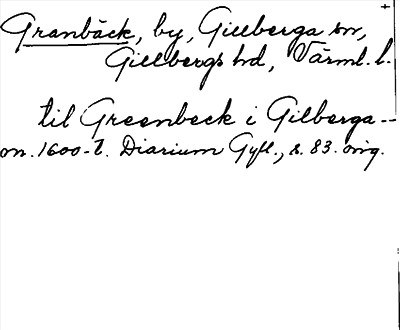 Granbäck, by, Gillberga sn,
Gillbergs hd, Värml. l.
til Greenbeck i Gilberga --
om. 1600-t. Diarium Gyll., s. 83. orig.